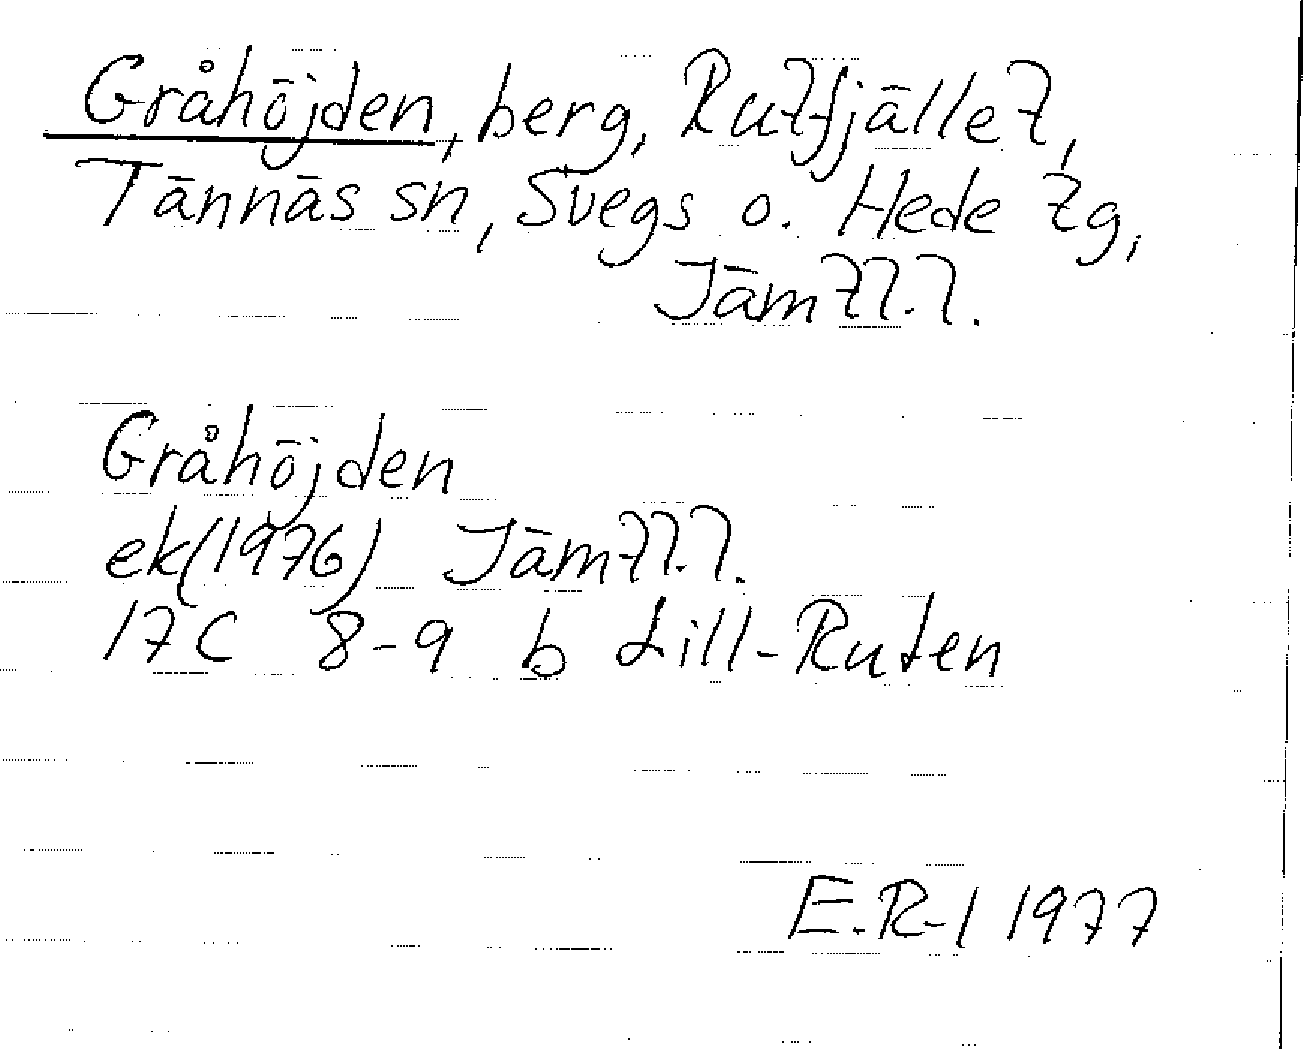 Gråhöjden, berg, Rutfjället,
Tännäs sn, Svegs o. Hede tg,
Jämtl.l.
Gråhöjden
ek(1976) Jämtl.l.
17C 8-9 b Lill-Ruten
E.R-l 1977